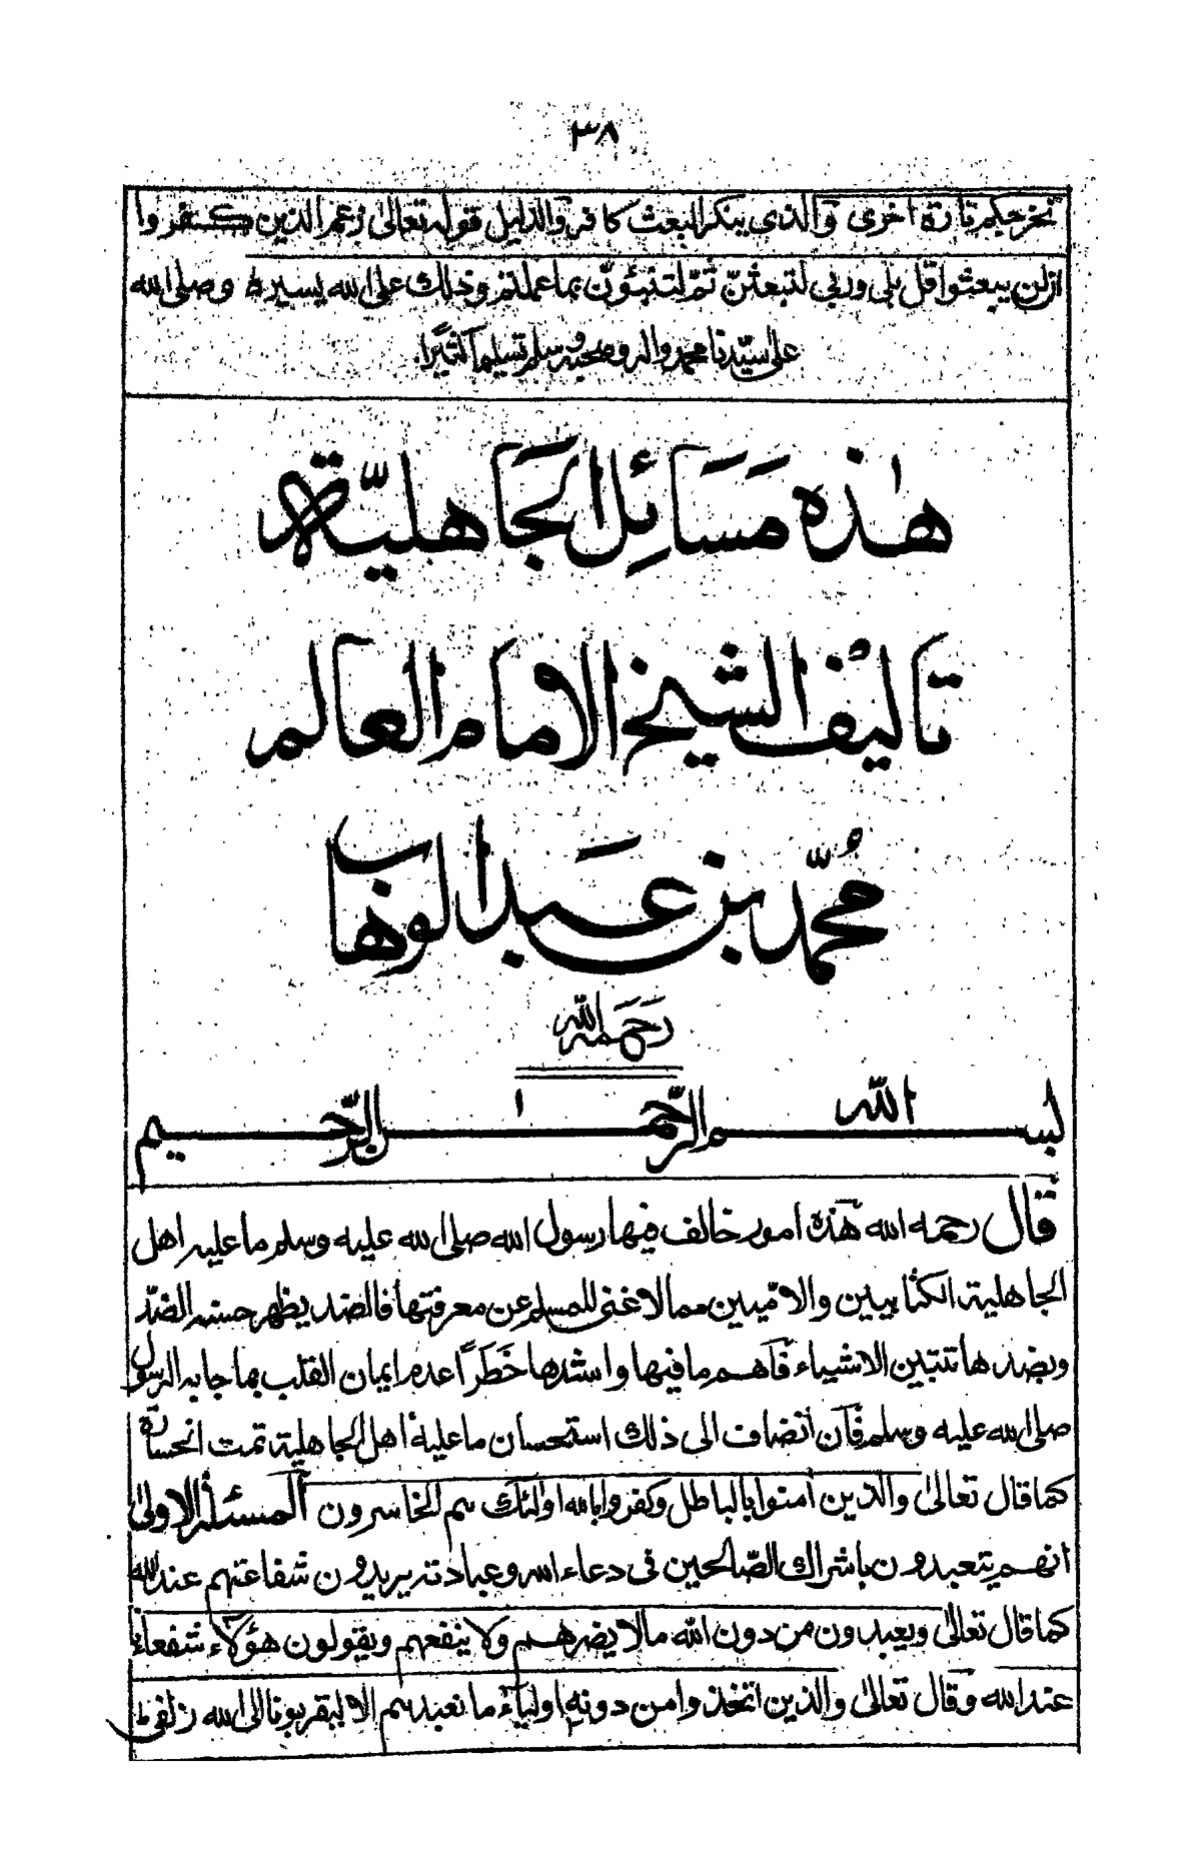 ٣٨
نخرجكم تارة اخرى والذى ينكر البعث كافر والدليل قوله تعالىٰ زعم الذين كفروا
ان لن يبعثوا قل بلى وربي لتبعثنّ ثمّ لتنبّئونّ بما عملتم وذلك على الله يسيره وصلى الله
على سيّدنا محمد واله وصحبه وسلم تسليما كثيرًا.
هٰذه مَسَائِل الجَاهليّة
تأليف الشيخ الامام العالم
مُحمّد بن عَبد الوهاب
رَحمَه الله
بسم الله الرّحمٰن الرّحيم
قال رحمه الله هذه امور خالف فيها رسول الله صلى الله عليه وسلم ما عليه اهل
الجاهلية الكتابيين والاميّين مما لا غنى للمسلم عن معرفتها فالضد يظهر حسنه الضدّ
وبضدها تتبين الاشياء فأهم ما فيها واشدها خَطَرًا عدم ايمان القلب بما جا به الرسول
صلى الله عليه وسلم فأن أنضاف الى ذلك استحسان ما عليه اهل الجاهلية تمت الخسارة
كما قال تعالىٰ والذين آمنوا بالباطل وكفروا بالله اولئك هم الخاسرون المسئلة الاولىٰ
انهم يتعبدون باشراك الصّالحين فى دعاء الله وعبادته يريدون شفاعتهم عند الله
كما قال تعالىٰ ويعبدون من دون الله ما لا يضرهم ولا ينفعهم ويقولون هؤلاء شفعاؤنا
عند الله وقال تعالىٰ والذين اتخذوا من دونهِ اولياءَ ما نعبدهم الا ليقربونا الى الله زلفى